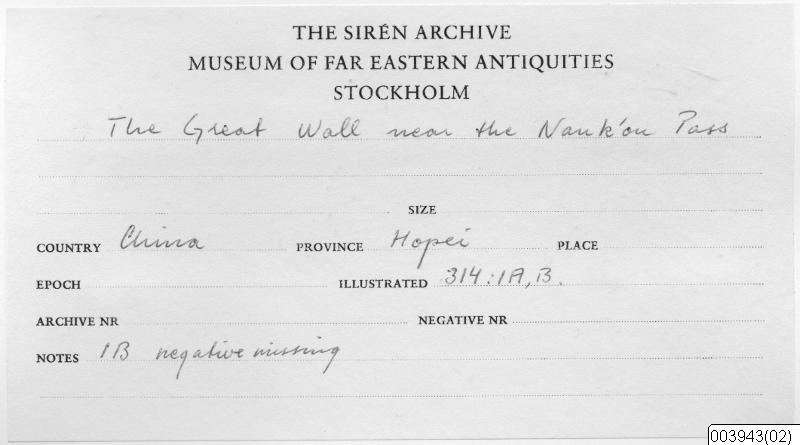 THE SIRÉN ARCHIVE
MUSEUM OF FAR EASTERN ANTIQUITIES
STOCKHOLM
The Great Wall near the Nank'ou Pass
SIZE
COUNTRY China PROVINCE Hopei PLACE
EPOCH ILLUSTRATED 314:1A, B.
ARCHIVE NR NEGATIVE NR
NOTES 1B negative missing
003943(02)